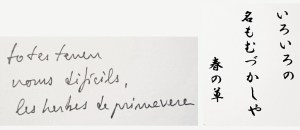 totes tenen
noms difícils,
les herbes de primavera
いろいろの
名もむづかしや
春の草